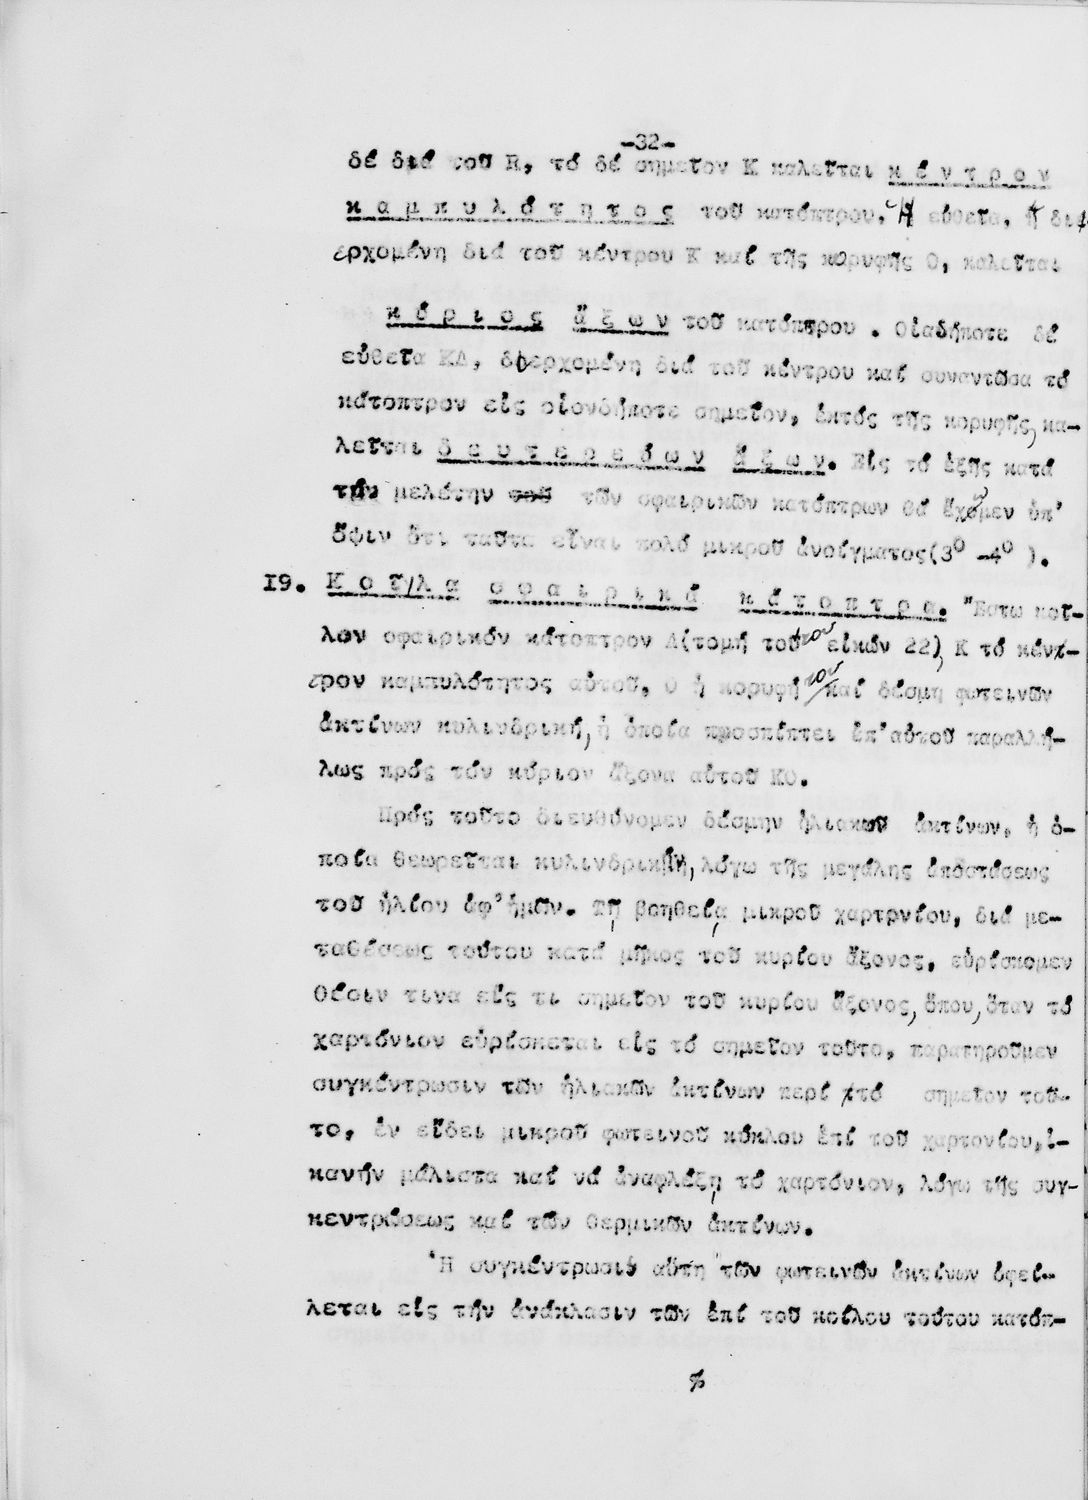 -32-
δέ διά τοῦ R, τό δέ σημεῖον Κ καλεῖται κ έ ν τ ρ ο ν
κ α μ π υ λ ό τ η τ ο ς τοῦ κατόπτρου. Ἡ εὐθεῖα, ἡ δι-
ερχομένη διά τοῦ κέντρου Κ καί τῆς κορυφῆς Ο, καλεῖται
κ ύ ρ ι ο ς ἄ ξ ω ν τοῦ κατόπτρου . Οἱαδήποτε δέ
εὐθεῖα ΚΔ, διερχομένη διά τοῦ κέντρου καί συναντῶσα τό
κάτοπτρον εἰς οἱονδήποτε σημεῖον, ἐκτός τῆς κορυφῆς, κα-
λεῖται δ ε υ τ ε ρ ε ύ ω ν ἄ ξ ω ν. Εἰς τό ἑξῆς κατά
τήν μελέτην τῶν σφαιρικῶν κατόπτρων θά ἔχωμεν ὑπ'
ὄψιν ὅτι ταῦτα εἶναι πολύ μικροῦ ἀνοίγματος(3⁰ -4⁰ ).
19. Κ ο ῖ λ α σ φ α ι ρ ι κ ά κ ά τ ο π τ ρ α. Ἔστω κοῖ-
λον σφαιρικόν κάτοπτρον Δ(τομή του εἰκών 22), Κ τό κέν-
τρον καμπυλότητος αὐτοῦ, Ο ἡ κορυφή του καί δέσμη φωτεινῶν
ἀκτίνων κυλινδρική, ἡ ὁποία προσπίπτει ἐπ'αὐτοῦ παραλλή-
λως πρός τόν κύριον ἄξονα αὐτοῦ ΚΟ.
Πρός τοῦτο διευθύνομεν δέσμην ἡλιακῶν ἀκτίνων, ἡ ὁ-
ποία θεωρεῖται κυλινδρική, λόγω τῆς μεγάλης ἀποστάσεως
τοῦ ἡλίου ἀφ'ἡμῶν. Τῇ βοηθείᾳ μικροῦ χαρτονίου, διά με-
ταθέσεως τούτου κατά μῆκος τοῦ κυρίου ἄξονος, εὑρίσκομεν
θέσιν τινα εἰς τι σημεῖον τοῦ κυρίου ἄξονος, ὅπου, ὅταν τό
χαρτόνιον εὑρίσκεται εἰς τό σημεῖον τοῦτο, παρατηροῦμεν
συγκέντρωσιν τῶν ἡλιακῶν ἀκτίνων περί τό σημεῖον τοῦ-
το, ἐν εἴδει μικροῦ φωτεινοῦ κύκλου ἐπί τοῦ χαρτονίου, ἱ-
κανήν μάλιστα καί νά ἀναφλέξῃ τό χαρτόνιον, λόγω τῆς συγ-
κεντρώσεως καί τῶν θερμικῶν ἀκτίνων.
Ἡ συγκέντρωσις αὕτη τῶν φωτεινῶν ἀκτίνων ὀφεί-
λεται εἰς τήν ἀνάκλασιν τῶν ἐπί τοῦ κοίλου τούτου κατόπ-
%